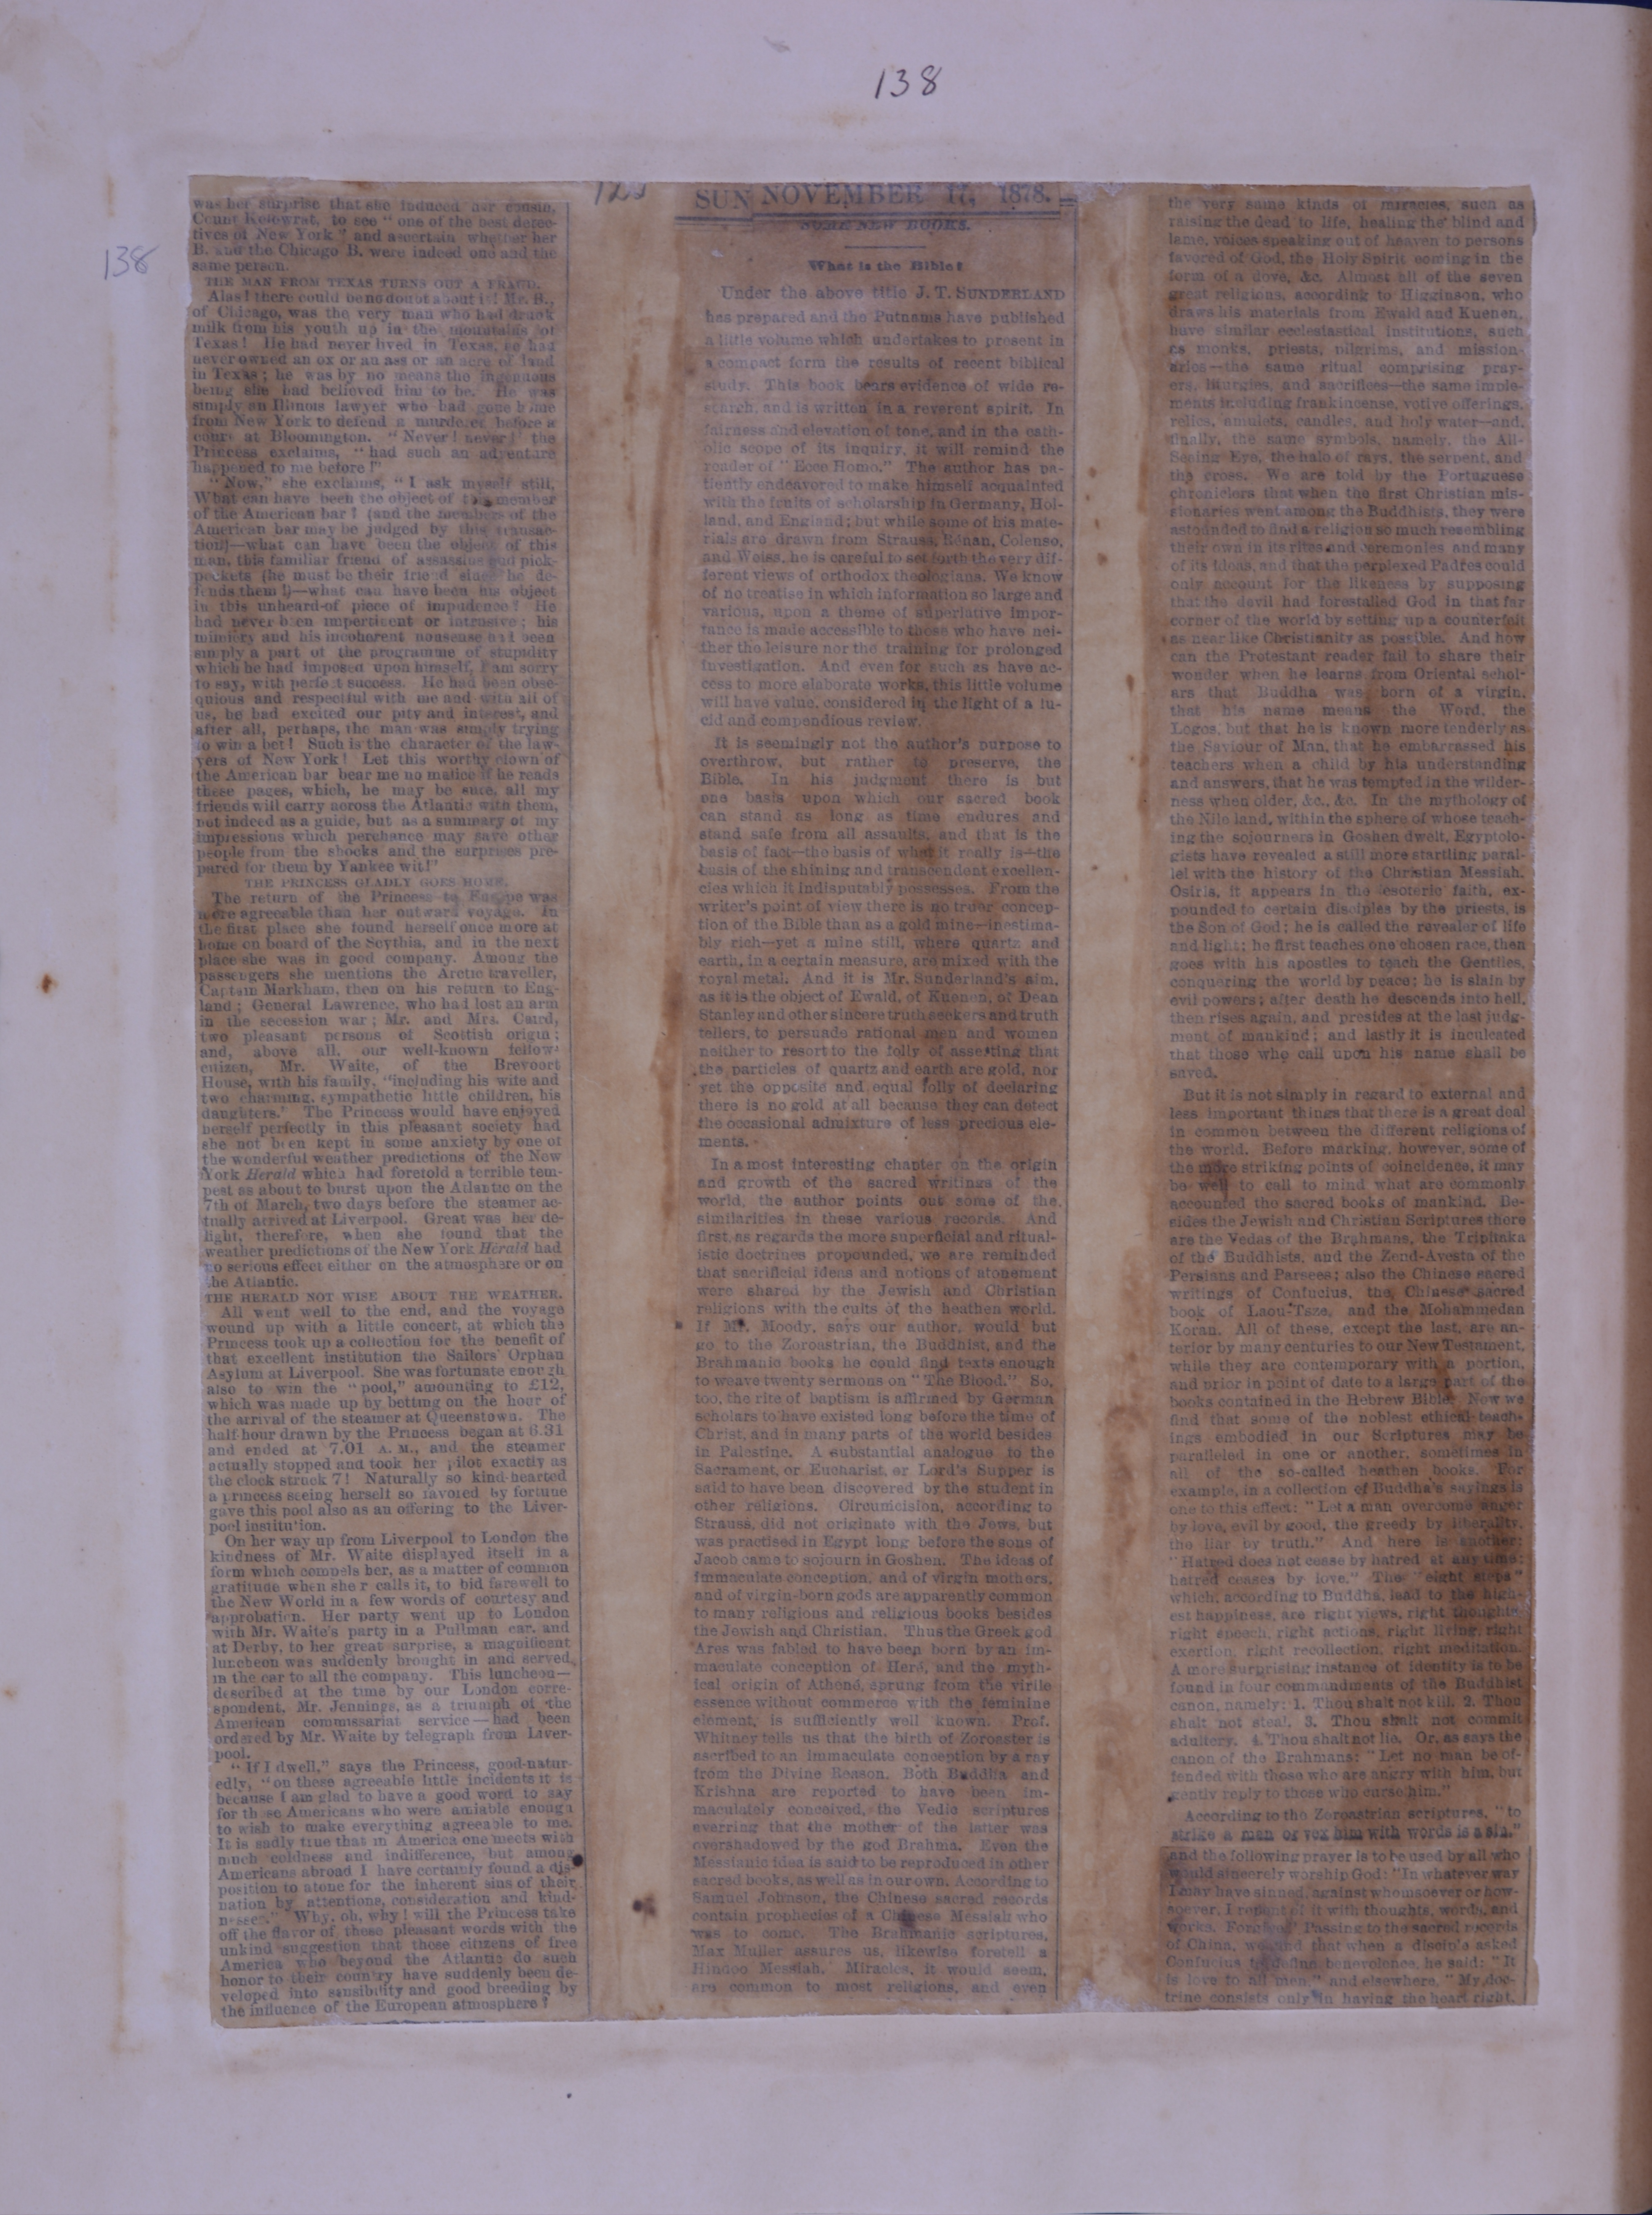 138
138
was her surprise that she induced her cousin,
Count Kolowrat, to see "one of the best detec-
tives of New York" and ascertain whether her
B. and the Chicago B. were indeed one and the
same person.
THE MAN FROM TEXAS TURNS OUT A FRAUD.
Alas! there could be no doubt about it! Mr. B.,
of Chicago, was the very man who had drunk
milk from his youth up in the mountains of
Texas! He had never lived in Texas, he had
never owned an ox or an ass or an acre of land
in Texas; he was by no means the ingenuous
being she had believed him to be. He was
simply an Illinois lawyer who had gone home
from New York to defend a murderer before a
court at Bloomington. "Never! never!" the
Princess exclaims, "had such an adventure
happened to me before!"
"Now," she exclaims, "I ask myself still,
What can have been the object of this member
of the American bar? (and the members of the
American bar may be judged by this transac-
tion)—what can have been the object of this
man, this familiar friend of assassins and pick-
pockets (he must be their friend since he de-
fends them!)—what can have been his object
in this unheard-of piece of impudence? He
had never been impertinent or intrusive; his
mimicry and his incoherent nonsense had been
simply a part of the programme of stupidity
which he had imposed upon himself, I am sorry
to say, with perfect success. He had been obse-
quious and respectful with me and with all of
us, he had excited our pity and interest, and
after all, perhaps, the man was simply trying
to win a bet! Such is the character of the law-
yers of New York! Let this worthy clown of
the American bar bear me no malice if he reads
these pages, which, he may be sure, all my
friends will carry across the Atlantic with them,
not indeed as a guide, but as a summary of my
impressions which perchance may save other
people from the shocks and the surprises pre-
pared for them by Yankee wit!"
THE PRINCESS GLADLY GOES HOME.
The return of the Princess to Europe was
more agreeable than her outward voyage. In
the first place she found herself once more at
home on board of the Scythia, and in the next
place she was in good company. Among the
passengers she mentions the Arctic traveller,
Captain Markham, then on his return to Eng-
land; General Lawrence, who had lost an arm
in the secession war; Mr. and Mrs. Caird,
two pleasant persons of Scottish origin;
and, above all, our well-known fellow-
citizen, Mr. Waite, of the Brevoort
House, with his family, "including his wife and
two charming, sympathetic little children, his
daughters." The Princess would have enjoyed
herself perfectly in this pleasant society had
she not been kept in some anxiety by one of
the wonderful weather predictions of the New
York Herald which had foretold a terrible tem-
pest as about to burst upon the Atlantic on the
7th of March, two days before the steamer ac-
tually arrived at Liverpool. Great was her de-
light, therefore, when she found that the
weather predictions of the New York Herald had
no serious effect either on the atmosphere or on
the Atlantic.
THE HERALD NOT WISE ABOUT THE WEATHER.
All went well to the end, and the voyage
wound up with a little concert, at which the
Princess took up a collection for the benefit of
that excellent institution the Sailors' Orphan
Asylum at Liverpool. She was fortunate enough
also to win the "pool," amounting to £12,
which was made up by betting on the hour of
the arrival of the steamer at Queenstown. The
half-hour drawn by the Princess began at 6.31
and ended at 7.01 A. M., and the steamer
actually stopped and took her pilot exactly as
the clock struck 7! Naturally so kind-hearted
a princess seeing herself so favored by fortune
gave this pool also as an offering to the Liver-
pool institution.
On her way up from Liverpool to London the
kindness of Mr. Waite displayed itself in a
form which compels her, as a matter of common
gratitude when she recalls it, to bid farewell to
the New World in a few words of courtesy and
approbation. Her party went up to London
with Mr. Waite's party in a Pullman car, and
at Derby, to her great surprise, a magnificent
luncheon was suddenly brought in and served
in the car to all the company. This luncheon—
described at the time by our London corre-
spondent, Mr. Jennings, as a triumph of the
American commissariat service—had been
ordered by Mr. Waite by telegraph from Liver-
pool.
"If I dwell," says the Princess, good-natur-
edly, "on these agreeable little incidents it is
because I am glad to have a good word to say
for those Americans who were amiable enough
to wish to make everything agreeable to me.
It is sadly true that in America one meets with
much coldness and indifference, but among
Americans abroad I have certainly found a dis-
position to atone for the inherent sins of their
nation by attentions, consideration and kind-
nesses." Why, oh, why! will the Princess take
off the flavor of these pleasant words with the
unkind suggestion that those citizens of free
America who beyond the Atlantic do such
honor to their country have suddenly been de-
veloped into sensibility and good breeding by
the influence of the European atmosphere?
SUN NOVEMBER 17, 1878.
SOME NEW BOOKS.
What is the Bible?
Under the above title J. T. SUNDERLAND
has prepared and the Putnams have published
a little volume which undertakes to present in
a compact form the results of recent biblical
study. This book bears evidence of wide re-
search, and is written in a reverent spirit. In
fairness and elevation of tone, and in the cath-
olic scope of its inquiry, it will remind the
reader of "Ecce Homo." The author has pa-
tiently endeavored to make himself acquainted
with the fruits of scholarship in Germany, Hol-
land, and England; but while some of his mate-
rials are drawn from Strauss, Rénan, Colenso,
and Weiss, he is careful to set forth the very dif-
ferent views of orthodox theologians. We know
of no treatise in which information so large and
various, upon a theme of superlative impor-
tance is made accessible to those who have nei-
ther the leisure nor the training for prolonged
investigation. And even for such as have ac-
cess to more elaborate works, this little volume
will have value, considered in the light of a lu-
cid and compendious review.
It is seemingly not the author's purpose to
overthrow, but rather to preserve, the
Bible. In his judgment there is but
one basis upon which our sacred book
can stand as long as time endures and
stand safe from all assaults, and that is the
basis of fact—the basis of what it really is—the
basis of the shining and transcendent excellen-
cies which it indisputably possesses. From the
writer's point of view there is no truer concep-
tion of the Bible than as a gold mine—inestima-
bly rich—yet a mine still, where quartz and
earth, in a certain measure, are mixed with the
royal metal. And it is Mr. Sunderland's aim,
as it is the object of Ewald, of Kuenen, of Dean
Stanley and other sincere truth seekers and truth
tellers, to persuade rational men and women
neither to resort to the folly of asserting that
the particles of quartz and earth are gold, nor
yet the opposite and equal folly of declaring
there is no gold at all because they can detect
the occasional admixture of less precious ele-
ments.
In a most interesting chapter on the origin
and growth of the sacred writings of the
world, the author points out some of the
similarities in these various records. And
first, as regards the more superficial and ritual-
istic doctrines propounded, we are reminded
that sacrificial ideas and notions of atonement
were shared by the Jewish and Christian
religions with the cults of the heathen world.
If Mr. Moody, says our author, would but
go to the Zoroastrian, the Buddhist, and the
Brahmanic books he could find texts enough
to weave twenty sermons on "The Blood." So,
too, the rite of baptism is affirmed by German
scholars to have existed long before the time of
Christ, and in many parts of the world besides
in Palestine. A substantial analogue to the
Sacrament, or Eucharist, or Lord's Supper is
said to have been discovered by the student in
other religions. Circumcision, according to
Strauss, did not originate with the Jews, but
was practised in Egypt long before the sons of
Jacob came to sojourn in Goshen. The ideas of
immaculate conception, and of virgin mothers,
and of virgin-born gods are apparently common
to many religions and religious books besides
the Jewish and Christian. Thus the Greek god
Ares was fabled to have been born by an im-
maculate conception of Heré, and the myth-
ical origin of Athené, sprung from the virile
essence without commerce with the feminine
element, is sufficiently well known. Prof.
Whitney tells us that the birth of Zoroaster is
ascribed to an immaculate conception by a ray
from the Divine Reason. Both Buddha and
Krishna are reported to have been im-
maculately conceived, the Vedic scriptures
averring that the mother of the latter was
overshadowed by the god Brahma. Even the
Messianic idea is said to be reproduced in other
sacred books, as well as in our own. According to
Samuel Johnson, the Chinese sacred records
contain prophecies of a Chinese Messiah who
was to come. The Brahmanic scriptures,
Max Muller assures us, likewise foretell a
Hindoo Messiah. Miracles, it would seem,
are common to most religions, and even
the very same kinds of miracles, such as
raising the dead to life, healing the blind and
lame, voices speaking out of heaven to persons
favored of God, the Holy Spirit coming in the
form of a dove, &c. Almost all of the seven
great religions, according to Higginson, who
draws his materials from Ewald and Kuenen,
have similar ecclesiastical institutions, such
as monks, priests, pilgrims, and mission-
aries—the same ritual comprising pray-
ers, liturgies, and sacrifices—the same imple-
ments including frankincense, votive offerings,
relics, amulets, candles, and holy water—and,
finally, the same symbols, namely, the All-
Seeing Eye, the halo of rays, the serpent, and
the cross. We are told by the Portuguese
chroniclers that when the first Christian mis-
sionaries went among the Buddhists, they were
astounded to find a religion so much resembling
their own in its rites and ceremonies and many
of its ideas, and that the perplexed Padres could
only account for the likeness by supposing
that the devil had forestalled God in that far
corner of the world by setting up a counterfeit
as near like Christianity as possible. And how
can the Protestant reader fail to share their
wonder when he learns from Oriental schol-
ars that Buddha was born of a virgin,
that his name means the Word, the
Logos, but that he is known more tenderly as
the Saviour of Man, that he embarrassed his
teachers when a child by his understanding
and answers, that he was tempted in the wilder-
ness when older, &c., &c. In the mythology of
the Nile land, within the sphere of whose teach-
ing the sojourners in Goshen dwelt, Egyptolo-
gists have revealed a still more startling paral-
lel with the history of the Christian Messiah.
Osiris, it appears in the esoteric faith, ex-
pounded to certain disciples by the priests, is
the Son of God; he is called the revealer of life
and light; he first teaches one chosen race, then
goes with his apostles to teach the Gentiles,
conquering the world by peace; he is slain by
evil powers; after death he descends into hell,
then rises again, and presides at the last judg-
ment of mankind; and lastly it is inculcated
that those who call upon his name shall be
saved.
But it is not simply in regard to external and
less important things that there is a great deal
in common between the different religions of
the world. Before marking, however, some of
the more striking points of coincidence, it may
be well to call to mind what are commonly
accounted the sacred books of mankind. Be-
sides the Jewish and Christian Scriptures there
are the Vedas of the Brahmans, the Tripitaka
of the Buddhists, and the Zend-Avesta of the
Persians and Parsees; also the Chinese sacred
writings of Confucius, the Chinese sacred
book of Laou-Tsze, and the Mohammedan
Koran. All of these, except the last, are an-
terior by many centuries to our New Testament,
while they are contemporary with a portion,
and prior in point of date to a large part of the
books contained in the Hebrew Bible. Now we
find that some of the noblest ethical teach-
ings embodied in our Scriptures may be
paralleled in one or another, sometimes in
all of the so-called heathen books. For
example, in a collection of Buddha's sayings is
one to this effect: "Let a man overcome anger
by love, evil by good, the greedy by liberality,
the liar by truth." And here is another:
"Hatred does not cease by hatred at any time;
hatred ceases by love." The "eight steps"
which, according to Buddha, lead to the high-
est happiness, are right views, right thoughts,
right speech, right actions, right living, right
exertion, right recollection, right meditation.
A more surprising instance of identity is to be
found in four commandments of the Buddhist
canon, namely: 1. Thou shalt not kill. 2. Thou
shalt not steal. 3. Thou shalt not commit
adultery. 4. Thou shalt not lie. Or, as says the
canon of the Brahmans: "Let no man be of-
fended with those who are angry with him, but
gently reply to those who curse him."
According to the Zoroastrian scriptures, "to
strike a man or vex him with words is a sin,"
and the following prayer is to be used by all who
would sincerely worship God: "In whatever way
I may have sinned, against whomsoever or how-
soever, I repent of it with thoughts, words, and
works. Forgive!" Passing to the sacred records
of China, we find that when a disciple asked
Confucius to define benevolence, he said: "It
is love to all men," and elsewhere, "My doc-
trine consists only in having the heart right,